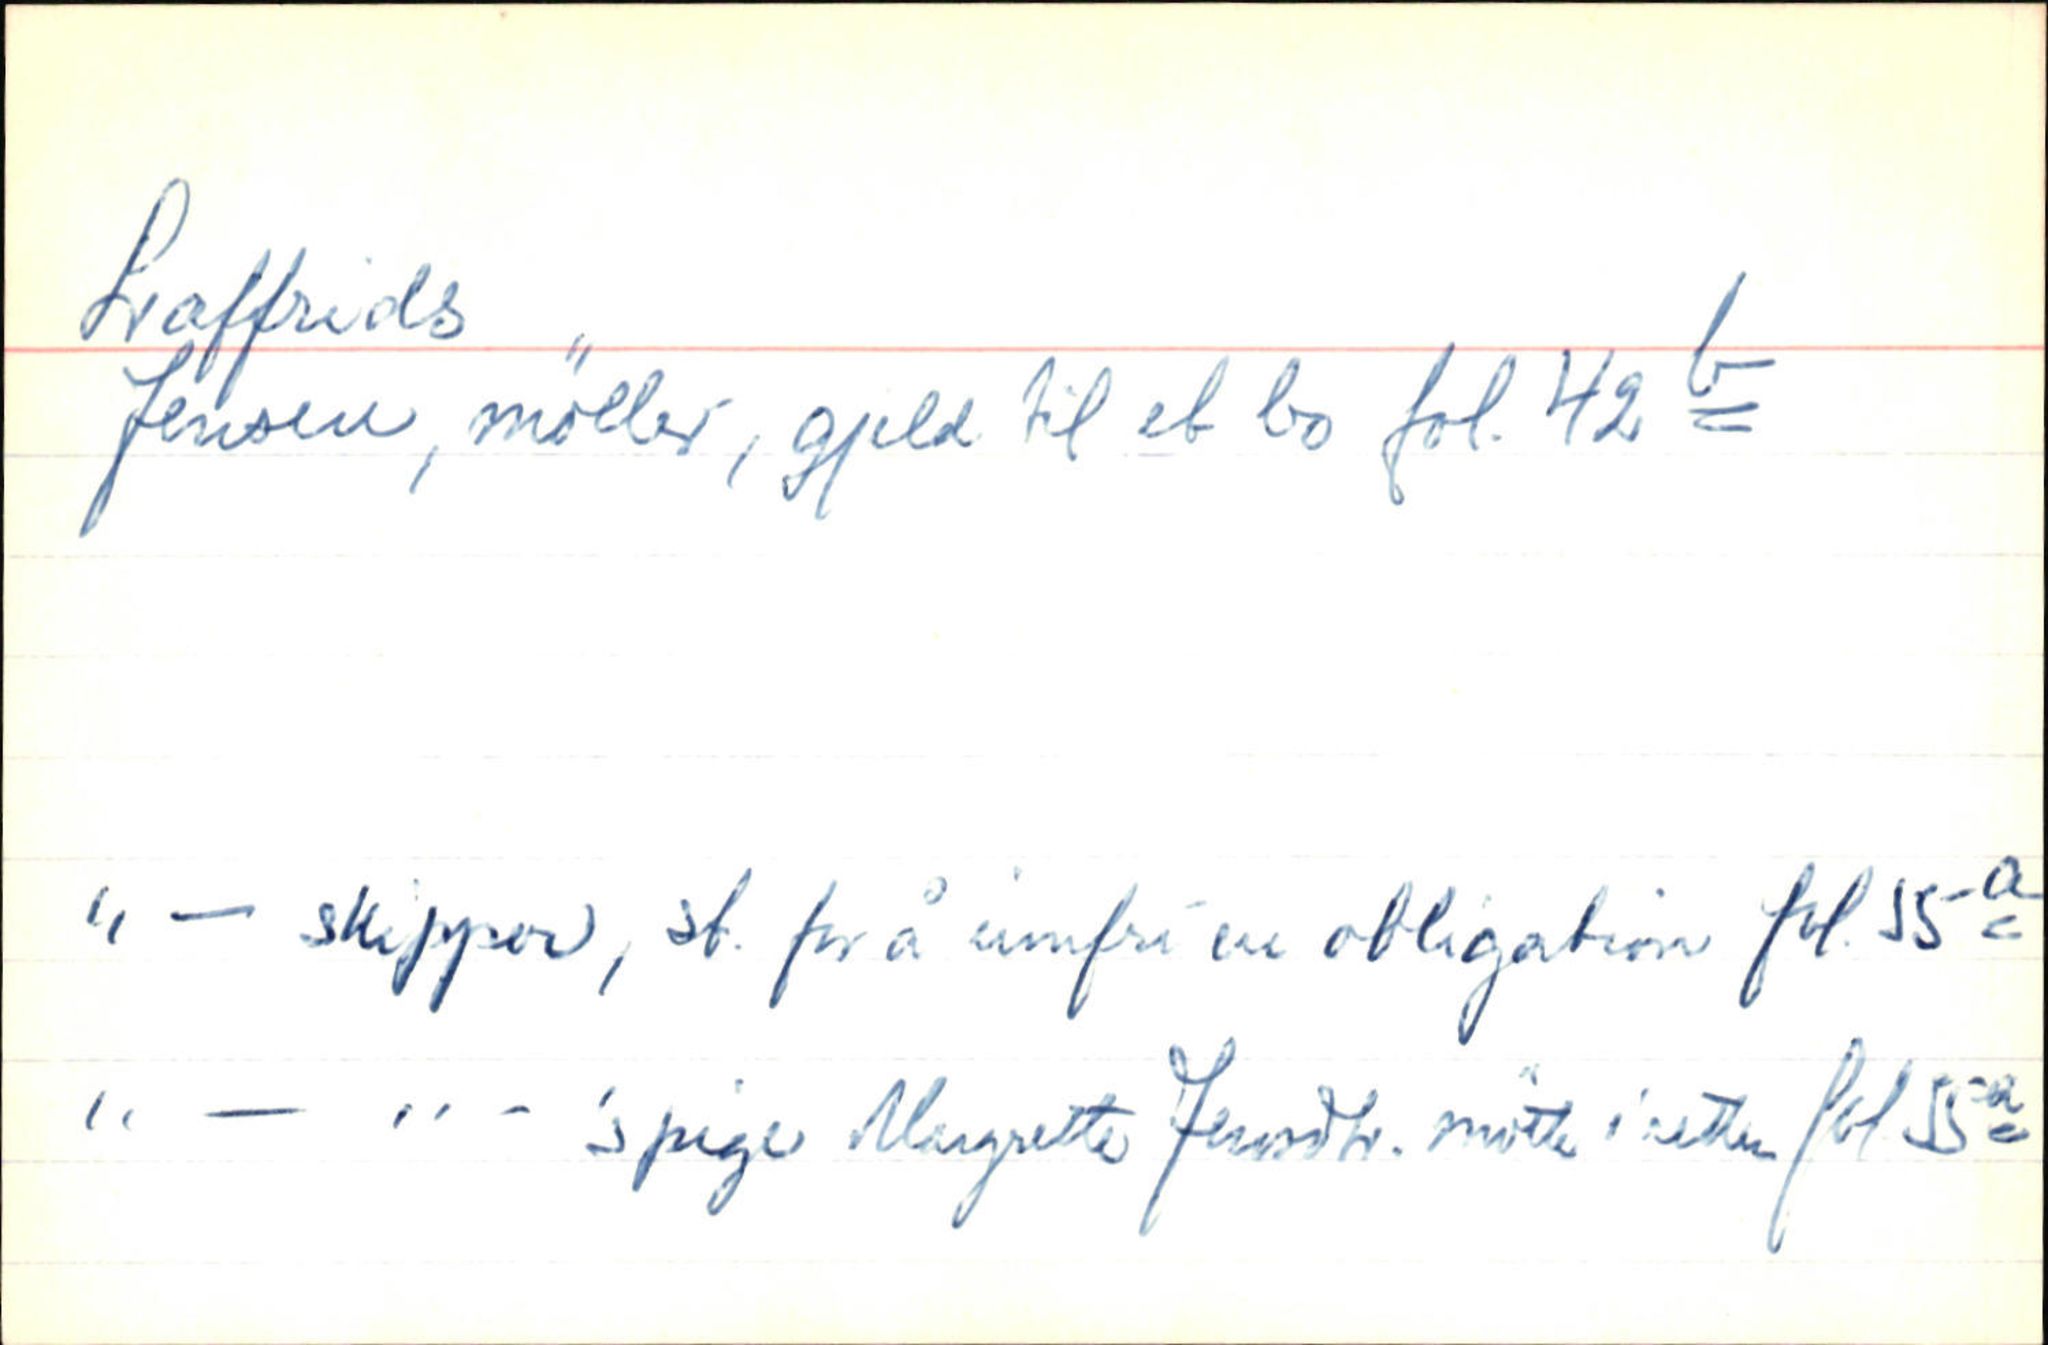 Laffrids
Jensen, möller, gjeld til et bo fol. 42 b
" — skipper, st. for å innfri en obligation fol. 55 a
" — " - 's pige Margrette Jensdtr. mötte i retten fol 55 a